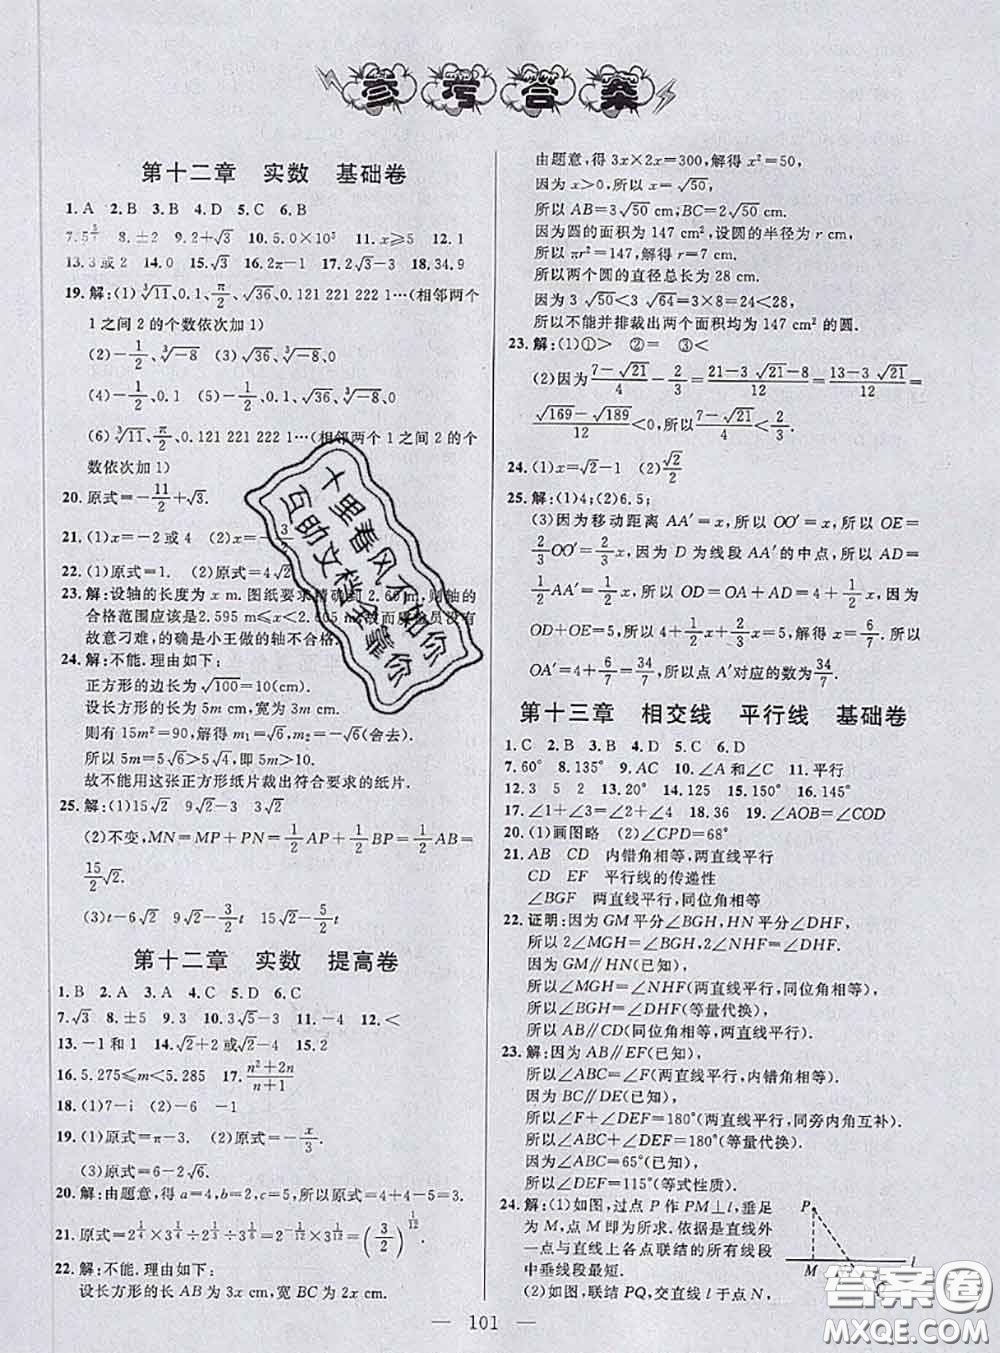 参考答案
第十二章 实数 基础卷
1.A 2.B 3.B 4.D 5.C 6.B
8.±2 9.2+√3 11.x⩾5 12.1
14.0 15.√3 16.2π−1 17.2√3−√13 18.34.9
19.解:(1)∛11、0.1、π/2、√36、0.121 221 222 1…(相邻两个
1之间2的个数依次加1)
(2)−1/2、∛−8 (3)√36、∛−8、0
(4)−1/2、0.1 (5)√36、0
(6)∛11、π/2、0.121 221 222 1…(相邻两个1之间2的个
数依次加1)
20.原式=−11/2+√3.
21.(1)x=−2或4 (2)x=
22.(1)原式= (2)原式=4√2
23.解:设轴的长度为x m.图纸要求精确到2.60 m,则轴的
合格范围应该是2.595 m⩽x<2.605 m,故而质检员没有
故意刁难,的确是小王做的轴不合格.
24.解:不能.理由如下:
正方形的边长为√100=10(cm).
设长方形的长为5m cm,宽为3m cm.
则有15m²=90,解得m₁=√6,m₂=−√6(舍去).
所以5m=5√6>5√4,即5m>10.
故不能用这张正方形纸片裁出符合要求的纸片.
25.解:(1)15√2 9√2−3 3√2
(2)不变,MN=MP+PN=1/2AP+1/2BP=1/2AB=
15/2√2.
(3)t−6√2 9√2−3/2t 15√2−5/2t
第十二章 实数 提高卷
1.B 2.A 3.A 4.C 5.D 6.C
7.√3 8.±5 9.3 10.3√5−3 11.−4 12.<
13.−1和1 14.√2+2或√2−4 15.2
16.5.275⩽m<5.285 17.(n²+2n)/(n+1)
18.(1)7−i (2)−6 −1
19.(1)原式=π−3. (2)原式=−x/3.
(3)原式=6−2√6.
20.解:由题意,得a=4,b=2,c=5,所以原式=4+4−5=3.
21.原式=2^(1/4)×3^(1/4)÷2^(1/3)÷3^(1/6)=2^(−1/12)×3^(1/12)=(3/2)^(1/12).
22.解:不能.理由如下:
设长方形的长AB为3x cm,宽BC为2x cm.
由题意,得3x×2x=300,解得x²=50,
因为x>0,所以x=√50,
所以AB=3√50 cm;BC=2√50 cm.
因为圆的面积为147 cm²,设圆的半径为r cm,
所以πr²=147,解得r=7.
所以两个圆的直径总长为28 cm.
因为3√50<3√64=3×8=24<28,
所以不能并排裁出两个面积均为147 cm²的圆.
23.解:(1)①> ②= ③<
(2)因为(7−√21)/4−2/3=(21−3√21−8)/12=(13−3√21)/12=
(√169−√189)/12<0,所以(7−√21)/4<2/3.
24.(1)x=√2−1 (2)√2/2
25.解:(1)4;(2)6.5;
(3)因为移动距离AA′=x,所以OO′=x,所以OE=
2/3OO′=2/3x,因为D为线段AA′的中点,所以AD=
1/2AA′=1/2x,所以OD=OA+AD=4+1/2x,因为
OD+OE=5,所以4+1/2x+2/3x=5,解得x=6/7.所以
OA′=4+6/7=34/7,所以点A′对应的数为34/7.
第十三章 相交线 平行线 基础卷
1.C 2.B 3.B 4.D 5.C 6.D
7.60° 8.135° 9.AC 10.∠A和∠C 11.平行
12.3 5 2 13.20° 14.125 15.150° 16.145°
17.∠1+∠3=∠2+∠4 18.36 19.∠AOB=∠COD
20.(1)画图略 (2)∠CPD=68°
21.AB CD 内错角相等,两直线平行
CD EF 平行线的传递性
∠BGF 两直线平行,同位角相等
22.证明:因为GM平分∠BGH,HN平分∠DHF,
所以2∠MGH=∠BGH,2∠NHF=∠DHF.
因为GM∥HN(已知),
所以∠MGH=∠NHF(两直线平行,同位角相等),
所以∠BGH=∠DHF(等量代换),
所以AB∥CD(同位角相等,两直线平行).
23.解:因为AB∥EF(已知),
所以∠ABC=∠F(两直线平行,内错角相等).
因为BC∥DE(已知),
所以∠F+∠DEF=180°(两直线平行,同旁内角互补).
所以∠ABC+∠DEF=180°(等量代换).
因为∠ABC=65°(已知),
所以∠DEF=115°(等式性质).
24.解:(1)如图,过点P作PM⊥l,垂足
为M,点M即为所求.依据是直线外
一点与直线上各点联结的所有线段
中垂线段最短.
(2)如图,联结PQ,交直线l于点N,
P
M
l
— 101 —
十里春风不如你
互助文档全靠你
答案圈
MXQE.COM